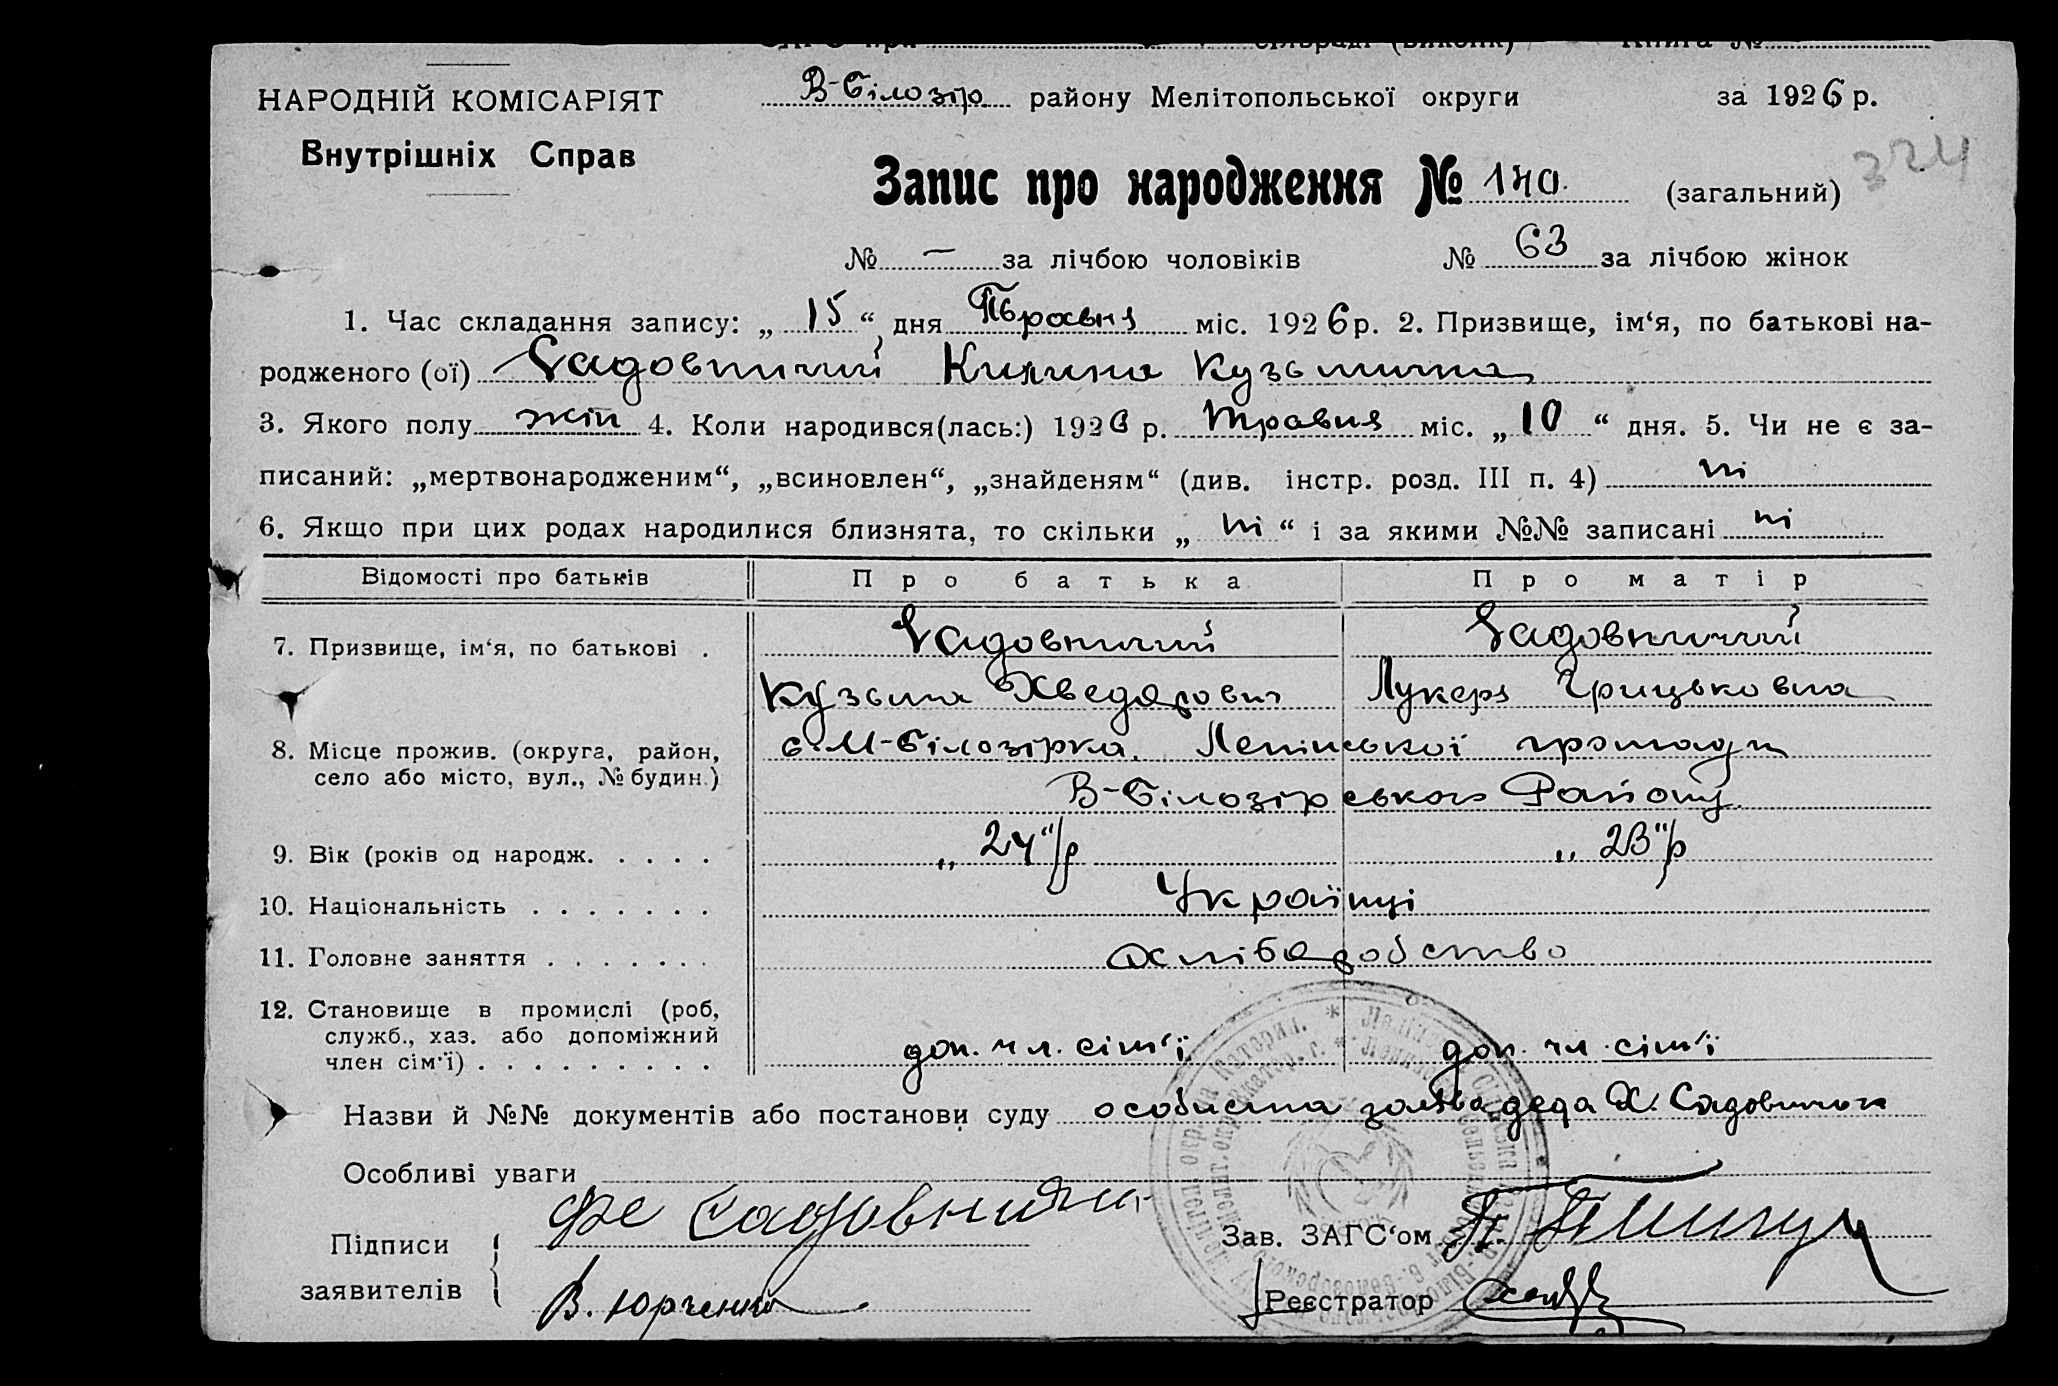 НАРОДНІЙ КОМІСАРІЯТ
Внутрішніх Справ
В-Білозір. району Мелітопольської округи за 1926 р.
324
Запис про народження № 140. (загальний)
№ — за лічбою чоловіків № 63 за лічбою жінок
1. Час складання запису: „ 15 “ дня Травня міс. 1926 р. 2. Призвище, ім‘я, по батькові на-
родженого (ої) Садовничий Килина Кузьминична
3. Якого полу жін 4. Коли народився(лась:) 1926 р. Травня міс. „ 10 “ дня. 5. Чи не є за-
писаний: „мертвонародженим“, „всиновлен“, „знайденям“ (див. інстр. розд. III п. 4) ні
6. Якщо при цих родах народилися близнята, то скільки „ ні “ і за якими №№ записані ні
Відомості про батьків Про батька Про матір
7. Призвище, ім‘я, по батькові . Садовничий Садовничий
Кузьма Хведорович Лукеря Грицьковна
8. Місце прожив. (округа, район, село або місто, вул., № будин.) с. М-Білозірка. Ленінської громади
В-Білозірського Району
9. Вік (років од народж. . . . . „ 24“/р „ 23“/р
10. Національність . . . . . . . Українці
11. Головне заняття . . . . . . . хліборобство
12. Становище в промислі (роб,
служб., хаз. або допоміжний
член сім‘ї) . . . . . . . . . доп. чл. сім‘ї доп. чл. сім‘ї
Назви й №№ документів або постанови суду особиста заява деда Х. Садовничия
Особливі уваги
Підписи заявителів Садовничий
В. Юрченко
Зав. ЗАГС‘ом
Реєстратор